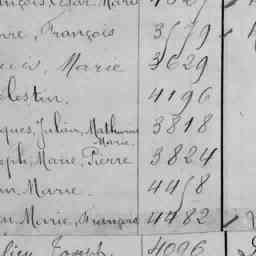 François, César, Marie
François 3579
Marie 3629
Célestin. 4196
Jacques, Julien, Mathurin 3818
Marie.
Joseph, Marie, Pierre 3824
Marie 4458
Marie, François 4482
Joseph 4096